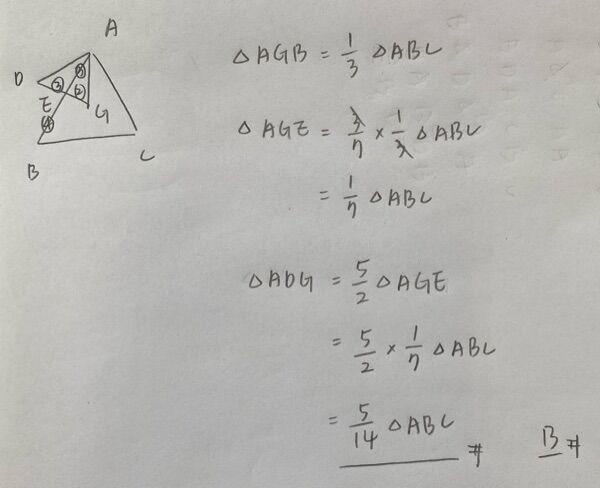 A
D
③
③
②
E
G
④
B
C
△AGB = 1/3 △ABC
△AGE = 3/7 × 1/3 △ABC
= 1/7 △ABC
△ADG = 5/2 △AGE
= 5/2 × 1/7 △ABC
= 5/14 △ABC #
B #